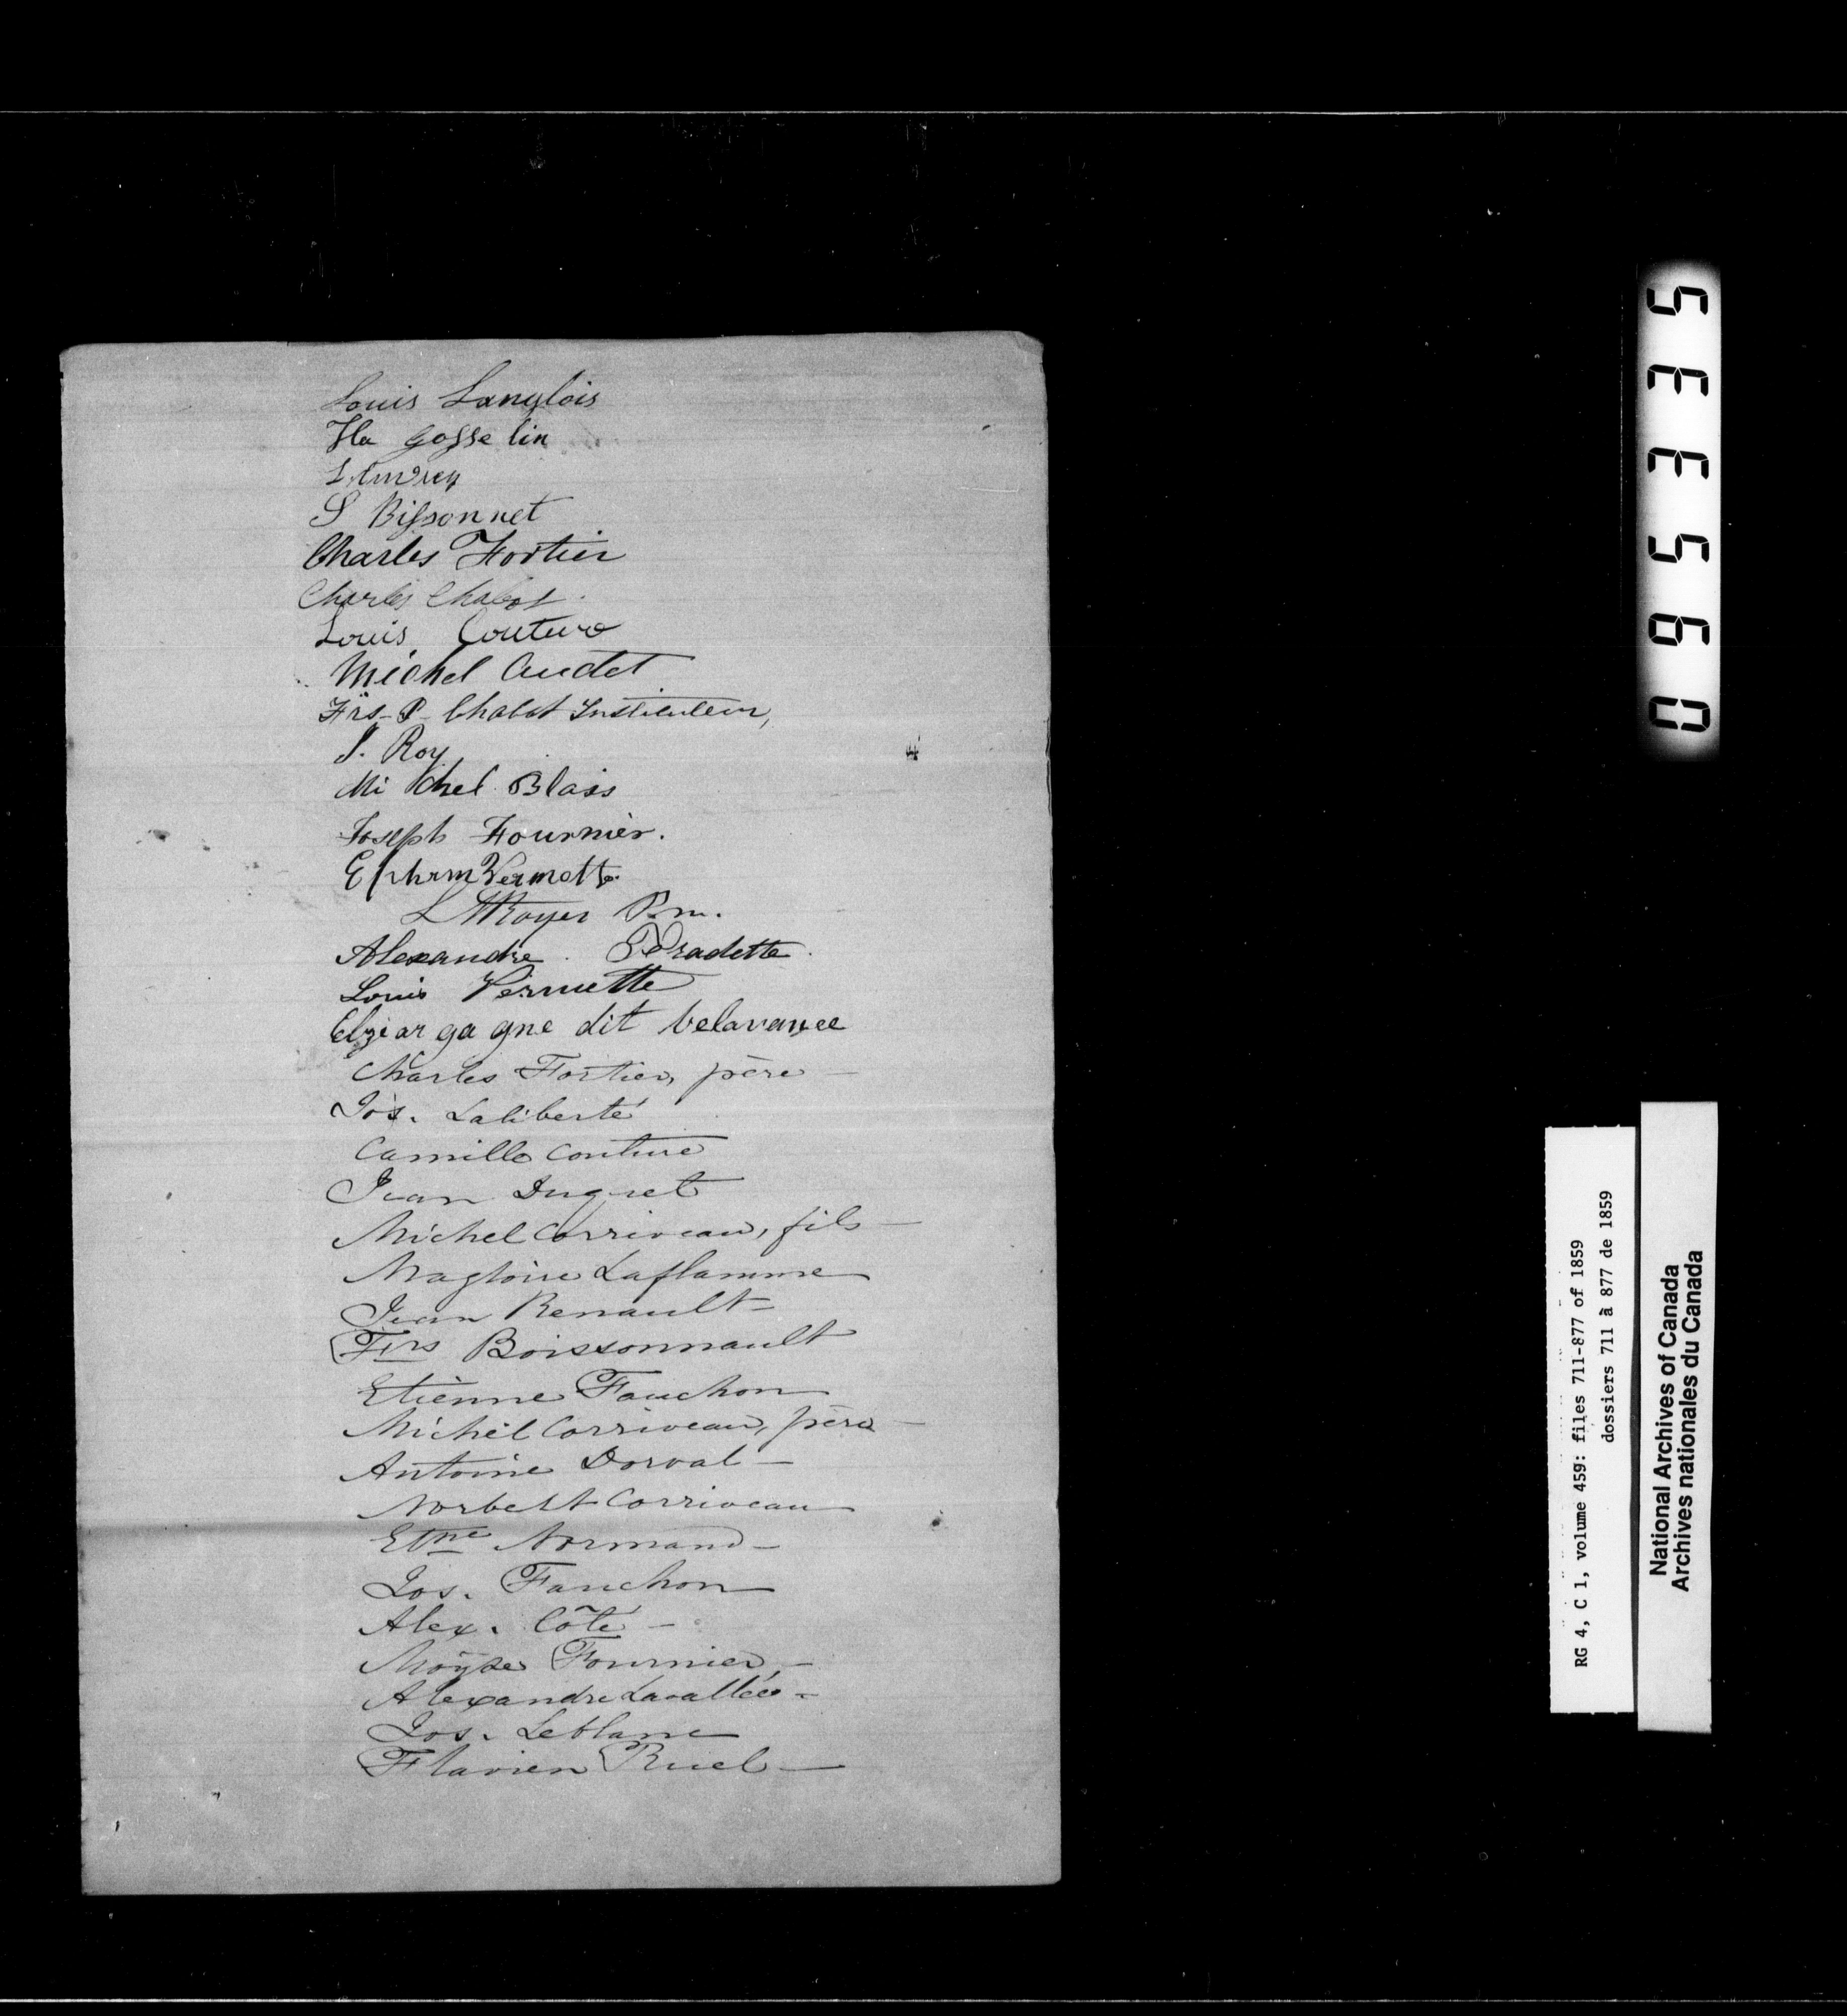 Louis Langlois
Fla gosse lin
S Bissonnet
Charles Fortier
Charles Chabot.
Louis Couture
Michel Audet
Frs - P - Chabot Instituteur,
J. Roy
Mi chel Blais
Joseph Fournier.
Ephrm Vermette
L Royer P.m.
Alexandre Peradette.
Louis Vermette
Elziar ga gne dit belavance
Charles Fortier, père —
Jos. Laliberté
Camille Couture
Jean Duquet
Michel Corriveau, fils —
Magloire Laflamme
Jean Renault —
Frs Boissonnault
Etienne Fauchon
Michel Corriveau, père —
Antoine Dorval —
Norbert Corriveau
Etne Normand —
Jos. Fauchon
Alex. Côté —
Moÿse Fournier —
Alexandre Lavallée. —
Jos. Leblanc
Flavien Ruel —
095335
RG 4, C 1, volume 459: files 711-877 of 1859
dossiers 711 à 877 de 1859
National Archives of Canada
Archives nationales du Canada